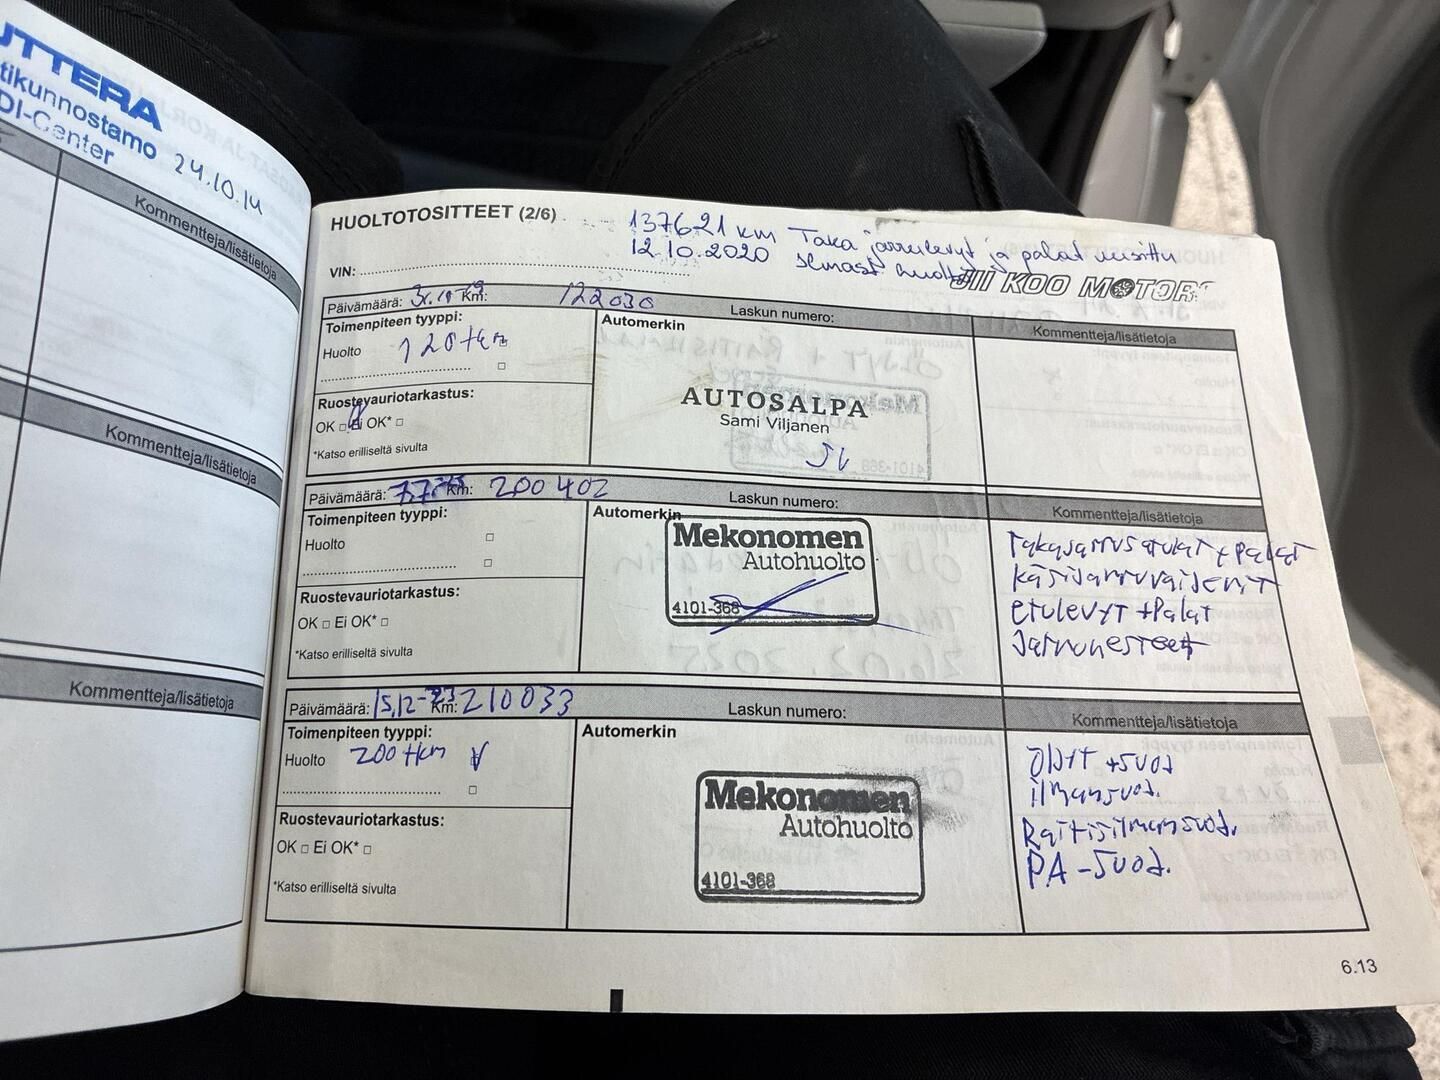 UTTERA
tikunnostamo
DI-Center
24.10.14
Kommentteja/lisätietoja
Kommentteja/lisätietoja
Kommentteja/lisätietoja
HUOLTOTOSITTEET (2/6)
137621 km Taka jarrulevyt ja palat uusittu
12.10.2020
JII KOO MOTORS
VIN:
Päivämäärä: Km: 122030 Laskun numero:
Kommentteja/lisätietoja
Toimenpiteen tyyppi:
Automerkin
Huolto 120tkm
Ruostevauriotarkastus:
OK □ Ei OK* □
*Katso erilliseltä sivulta
AUTOSALPA
Sami Viljanen
Päivämäärä: Km: 200402 Laskun numero:
Kommentteja/lisätietoja
Toimenpiteen tyyppi:
Automerkin
Huolto □
□
Ruostevauriotarkastus:
OK □ Ei OK* □
*Katso erilliseltä sivulta
Mekonomen
Autohuolto
4101-368
Takajarrusatulat + palat
käsijarruvaijerit
etulevyt + palat
Jarruneste
Päivämäärä: 15.12-23 Km: 210033 Laskun numero:
Kommentteja/lisätietoja
Toimenpiteen tyyppi:
Automerkin
Huolto 200tkm V
□
Ruostevauriotarkastus:
OK □ Ei OK* □
*Katso erilliseltä sivulta
Mekonomen
Autohuolto
4101-368
Öljyt + suod
ilmansuod.
Raitisilmansuod.
PA-suod.
6.13